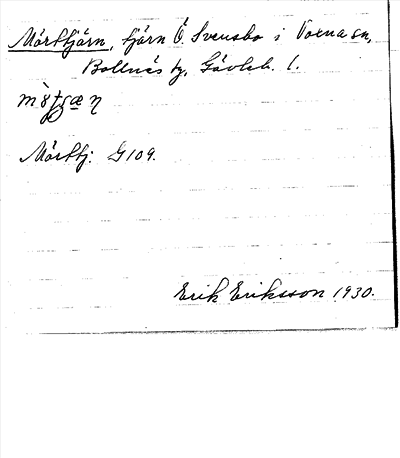 Mörttjärn, tjärn Ö. Svensbo i Voxna sn,
Bollnäs tg, Gävleb. l.
Mörttj: G109.
Erik Eriksson 1930.